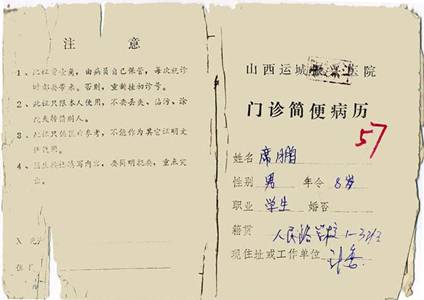 注 意
1、此证壹角，由病员自己保管，每次就诊
时都要带来，否则，重新挂初诊号。
2、此证只限本人使用，不要丢失、沾污、涂
改或转借别人。
3、此证只供医疗参考，不能作为其它证明文
件使用。
4、医生按栏填写内容，要简明扼要，重点突
出。
X 光
住
山西运城 医院
门诊简便病历
57
姓名 席鹏
性别 男 年令 8岁
职业 学生 婚否
籍贯 人民路
现住址或工作单位